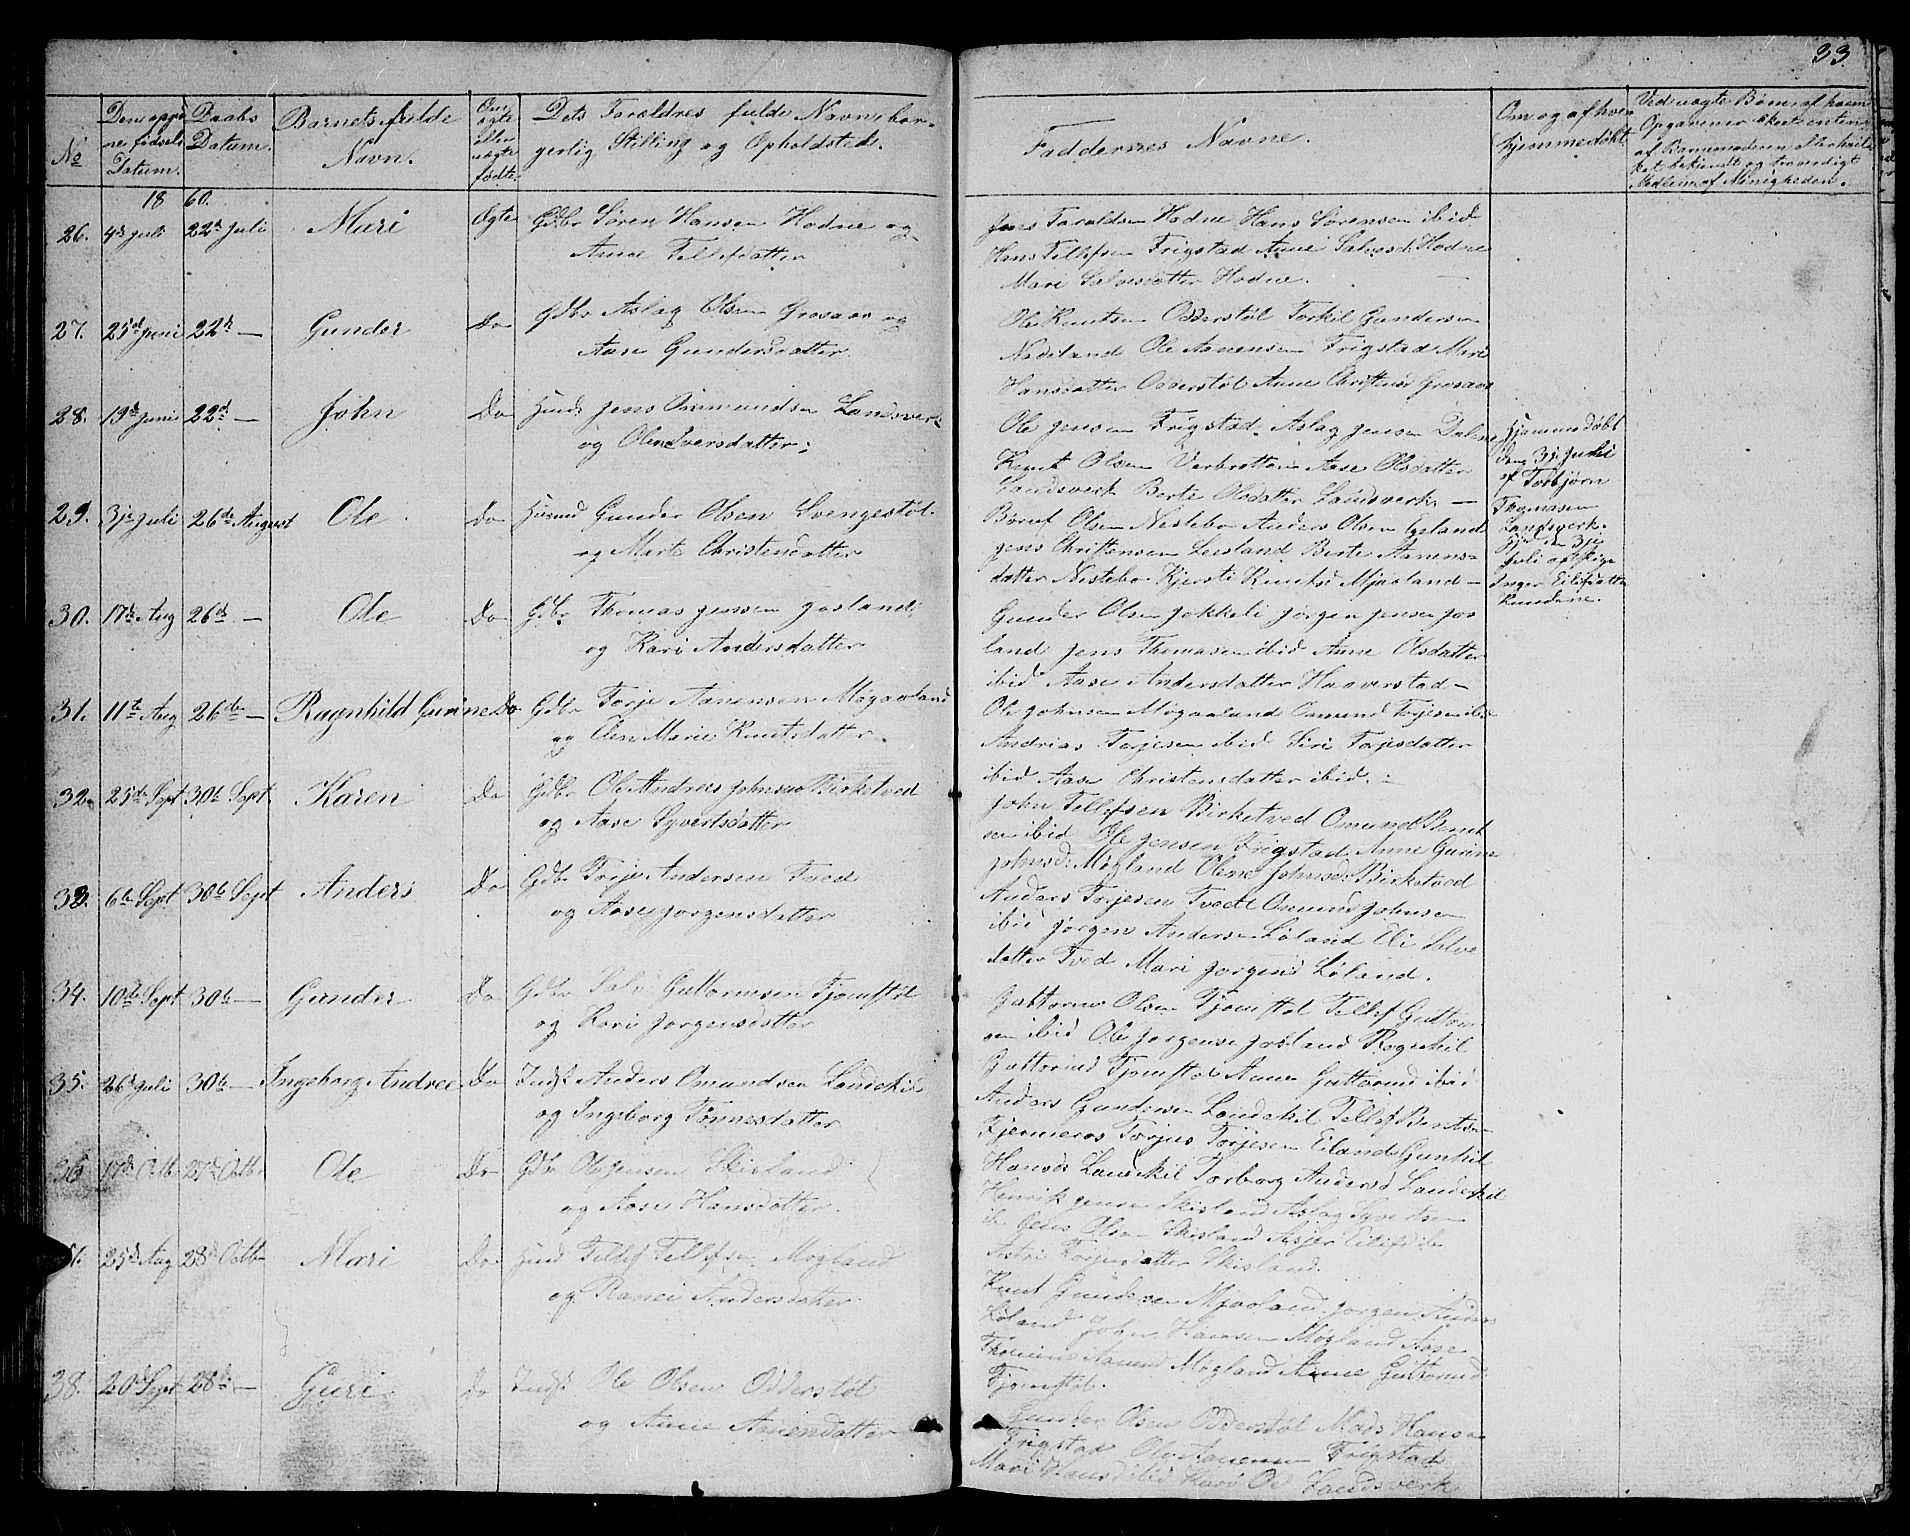 33.
No
Den opgiv-
ne fødsels
Datum.
Daabs
Datum.
Barnets fulde
Navn.
Om
ægte
eller
uægte
fødte.
Dets Foreldres fulde Navne bor-
gerlig Stilling og Opholdsted.
Faddernes Navne.
Om og af hvem
hjemmedøbt
Ved uægte Børn, af hvem
Opgavener
af Barnemoderen eller
bekiendt og troværdigt
Medlem af Menigheden.
1860.
26. 4de juli 22de juli Mari Ægte Gdbr Søren Hansen Hodne og
Anne Tellefdatter
Jens Taraldsen Hodne Hans Sørensen ibid
Hans Tellefsen Frigstad Anne Salvesd Hodne
Mari Salvesdatter Hodne.
27. 25de juni 22de — Gunder Do Gdbr Aslag Olsen Grosaas og
Aase Gundersdatter
Ole Knutsen Odderstøl Torkil Gundersen
Nodeland Ole Aanensen Frigstad Mari
Hansdatter Odderstøl Anne Christensd Grosaas
28. 19de juni 22de — John Do Huusd Jens Omundsen Landsverk
og Olene Iversdatter.
Ole Jensen Frigstad. Aslag Jensen Dalene
Knut Olsen Verbratten Aase Olsdatter
Landsverk Berte Olsdatter Landsverk —
Hjemmedøbt
den juli
af Torbjørn
Thomasen
Landsverk.
29. 3je juli 26de August Ole Do Huusmd Gunder Olsen Svengestøl
og Marte Christensdatter
Børuf Olsen Nestebø Anders Olsen Egeland
Jens Christensen Leisland Berte Aanens-
datter Nestebø Kjersti Knutsd Mjaaland —
Hjd den 3je
juli af Pige
Inger Eilefdatter
30. 17de Aug 26de — Ole Do Gdbr Thomas Jensen Josland
og Kari Andersdatter
Gunder Olsen Jokkeli Jørgen Jensen Jos
land Jens Thomasen ibid Anne Olsdatter
ibid Aase Andersdatter Haaverstad —
31. 11te Aug 26de — Ragnhild Gurine Do Gdbr Torje Aanensen Møgaaland
og Olen Marie Knutsdatter.
Ole Johnsen Møgaaland Omund Torjesen ibid
Andrias Torjesen ibid Siri Torjesdatter
ibid Aase Christensdatter ibid. -
32. 25de Sept 30te Sept. Karen Do Gdbr Ole Andreas Johnsen Birketved
og Aase Syvertsdatter
John Tellefsen Birketved Omund Bent
sen ibid Ole Jensen Frigstad Anne Gurine
Johnsd: Møgland Olene Johnsd: Birketved
33. 6te Sept 30te Sept Anders Do Gdbr Torje Andersen Tved
og Aase Jorgensdatter
Anders Torjesen Tvedt Omund Johnsen
ibid Jørgen Andersen Løland Eli Salve
datter Tved Mari Jorgensd Løland.
34. 10de Sept 30te — Gunder Do Gdbr Salv Guttormsen Tjomstøl
og Kari Jorgensdatter
Guttorm Olsen Tjomstøl Tellef Guttorm
sen ibid Ole Jorgensen Josland Ragnhil
Guttormsd Tjomstøl Anne Guttormsd ibid
35. 26de juli 30te — Ingeborg Andrea Do Indst Anders Omundsen Landekil
og Ingeborg Tønnesdatter
Anders Gundersen Landekil Tellef Bentsen
Fjermeros Torjus Torjesen Eiland Gunhil
Hansd: Landekil Torborg Andersd Landekil
36 17de Octb. 27de Octb. Ole Do Gdbr Ole Jensen Skisland
og Aase Hansdatter.
Henrik Jensen Skisland Aslag Syvertsen
ib Jens Olsen Skisland Asjer Eilifsd ib
Astri Torjusdatter Skisland.
37. 25de Aug 28de Octb Mari Do Huusd Tellef Tellefsen Møgland
og Ranei Andersdatter.
Knut Gundersen Mjaaland Jorgen Anders
Løland John Hansen Møgland Aase
Thomine Aanensd Møgland Anne Guttormsd
Tjomstøl.
38. 20de Sept 28de — Guri Do Indst Ole Olsen Odderstøl
og Anne Aanensdatter
Gunder Olsen Odderstøl Mads Hansen
Frigstad Ole Aanensen Frigstad
Mari Hansd ibid Kari Od Landsverk